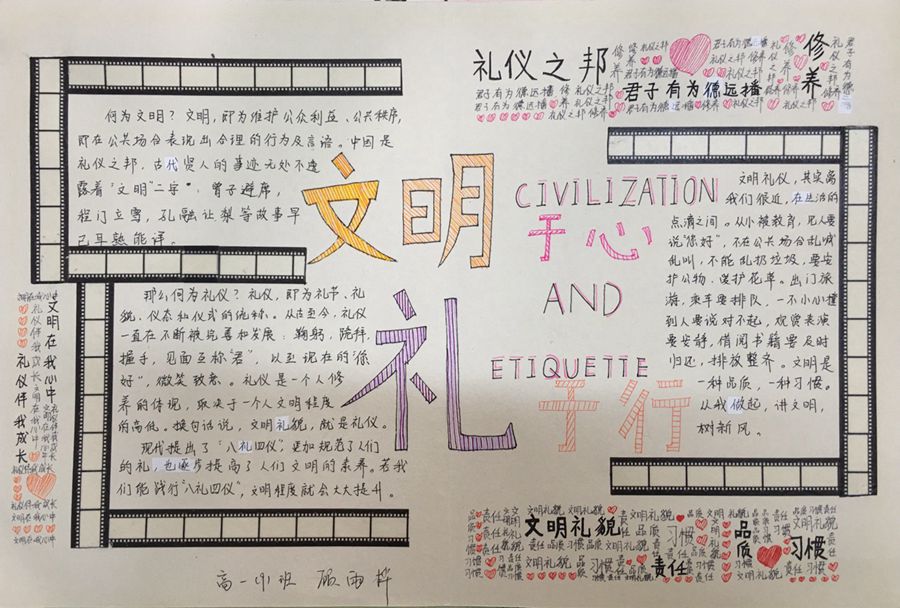 礼仪之邦
君子有为德远播
修养
何为文明？文明，即为维护公众利益、公共秩序，
即在公共场合表现出合理的行为及言语。中国是
礼仪之邦，古代贤人的事迹无处不透
露着“文明”二字：曾子避席，
程门立雪，孔融让梨等故事早
已耳熟能详。
文明
于心
礼
于行
CIVILIZATION
AND
ETIQUETTE
文明礼仪，其实离
我们很近，在生活的
点滴之间。从小被教育，见人要
说“您好”，不在公共场合乱喊
乱叫，不能乱扔垃圾，要安
护公物、爱护花草。出门旅
游，乘车要排队，一不小心撞
到人要说对不起，观赏表演
要安静，借阅书籍要及时
归还，排放整齐。文明是
一种品质，一种习惯。
从我做起，讲文明，
树新风。
那么何为礼仪？礼仪，即为礼节、礼
貌、仪态和仪式的统称。从古至今，礼仪
一直在不断被完善和发展：鞠躬，跪拜，
握手，见面互称“君”，以至现在的“您
好”，微笑致意。礼仪是一个人修
养的体现，取决于一个人文明程度
的高低。换句话说，文明礼貌，就是礼仪。
现代提出了“八礼四仪”，更加规范了人们
的礼，也逐步提高了人们文明的素养。若我
们能践行“八礼四仪”，文明程度就会大大提升。
文明在我心中
礼仪伴我成长
文明礼貌
责任
品质
习惯
高一(9)班